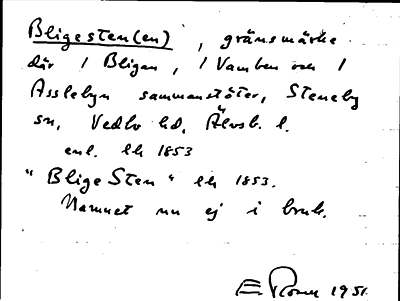 Bligesten(en), gränsmärke
där / Bligan, / Vamben och /
Asslebyn sammanstöter, Steneby
sn, Vedbo hd, Älvsb. l.
enl. lk 1853
"Blige Sten" lk 1853.
Namnet nu ej i bruk.
1951